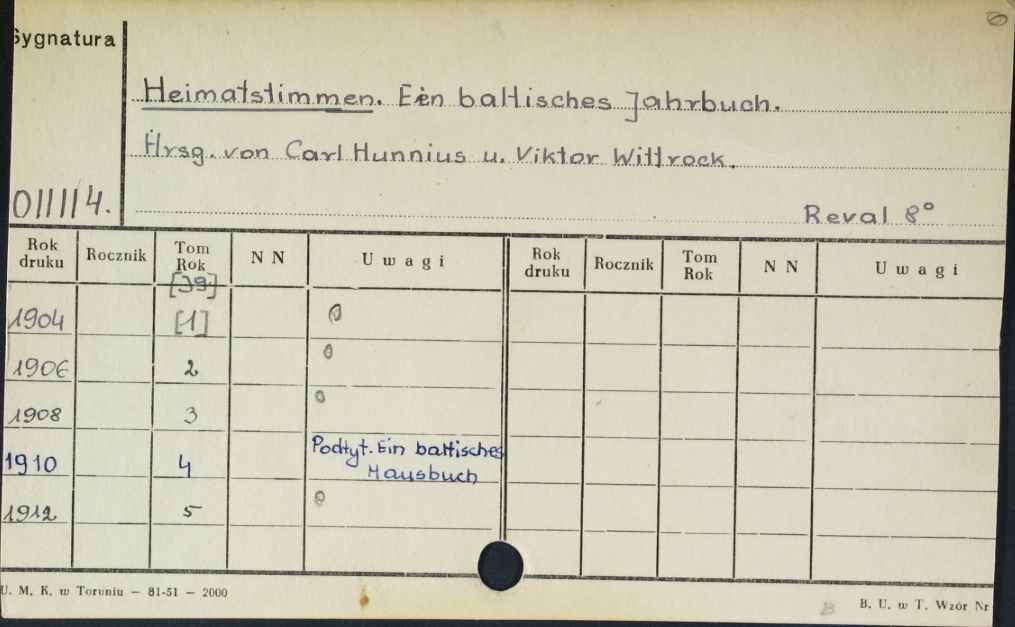 Sygnatura
Heimatstimmen. Ein baltisches Jahrbuch.
Hrsg. von Carl Hunnius u. Viktor Wittrock.
011114.
Reval 8°
Rok druku Rocznik Tom Rok N N Uwagi Rok druku Rocznik Tom Rok N N Uwagi
1904 [1]
1906 2
1908 3
1910 4 Podtyt. Ein baltisches
Hausbuch
1912 5
U. M. K. w Toruniu — 81-51 — 2000
B. U. w T. Wzór Nr